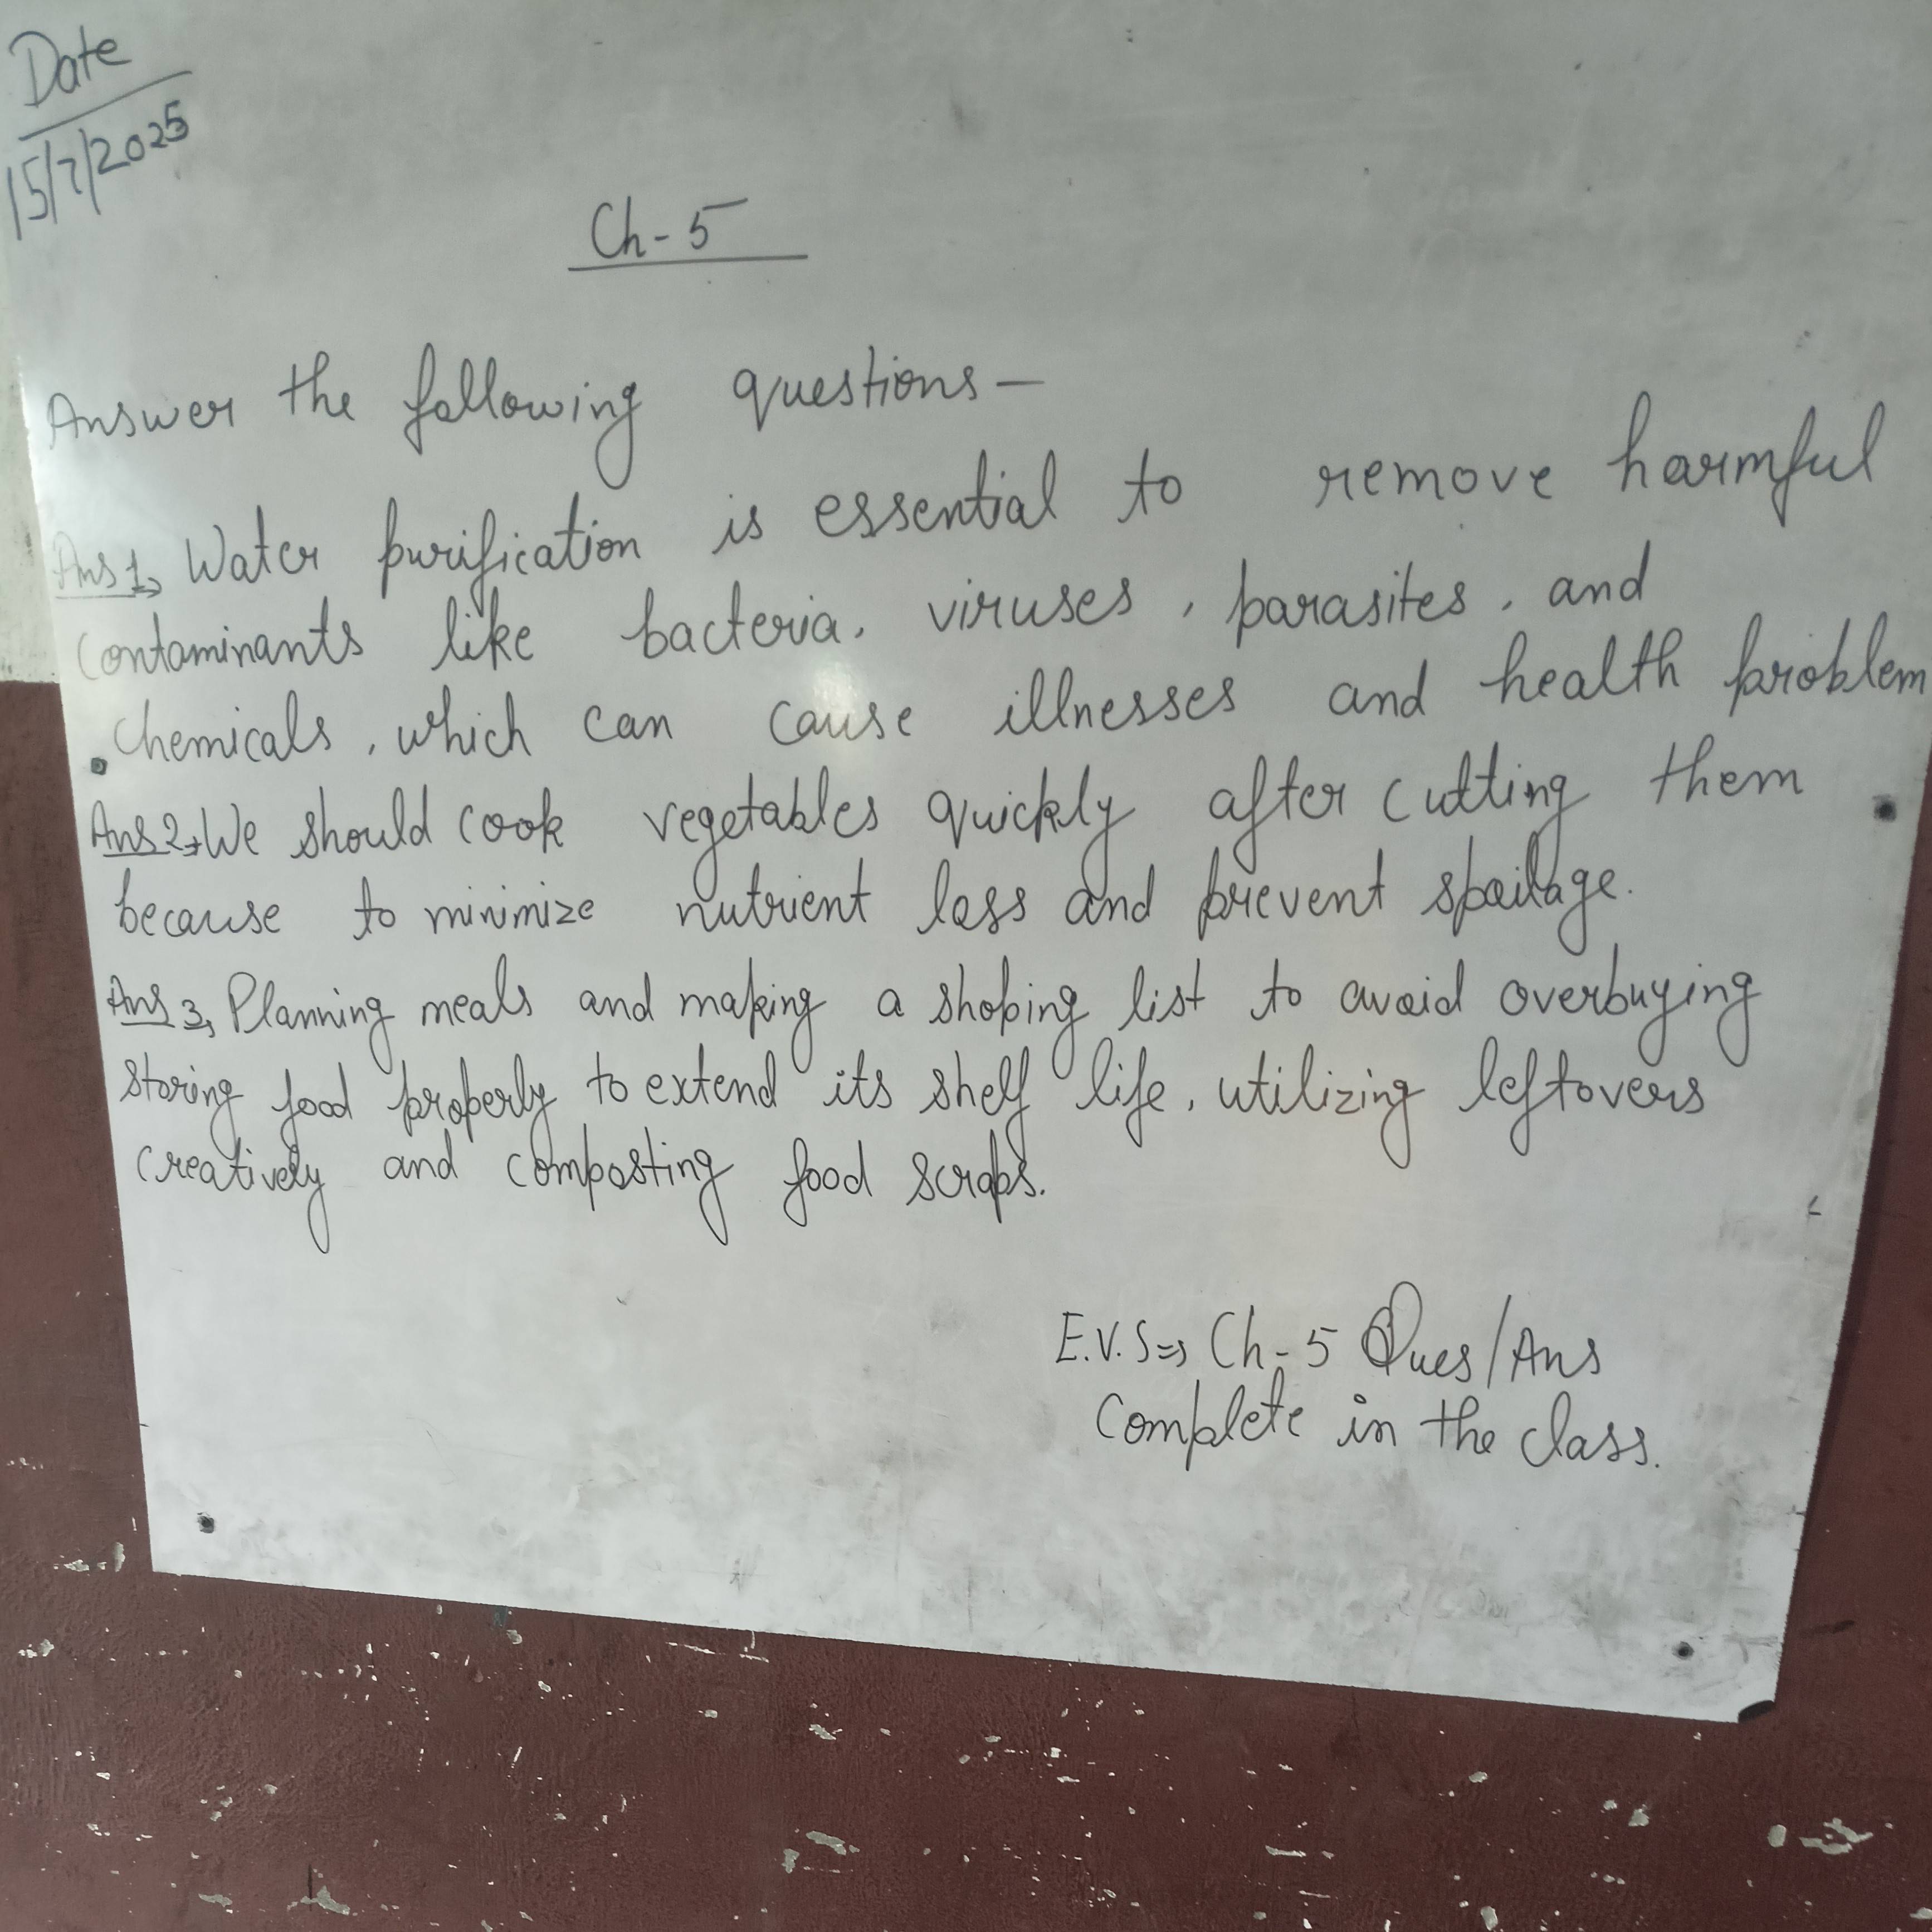 Date
15/7/2025
Ch-5
Answer the following questions—
Ans 1, Water purification is essential to remove harmful
contaminants like bacteria, viruses, parasites, and
chemicals, which can cause illnesses and health problem
Ans 2, We should cook vegetables quickly after cutting them
because to minimize nutrient loss and prevent spoilage.
Ans 3, Planning meals and making a shoping list to avoid overbuying
storing food properly to extend its shelf life, utilizing leftovers
creatively and composting food scraps.
E.V.S⇒ Ch-5 Ques/Ans
Complete in the class.